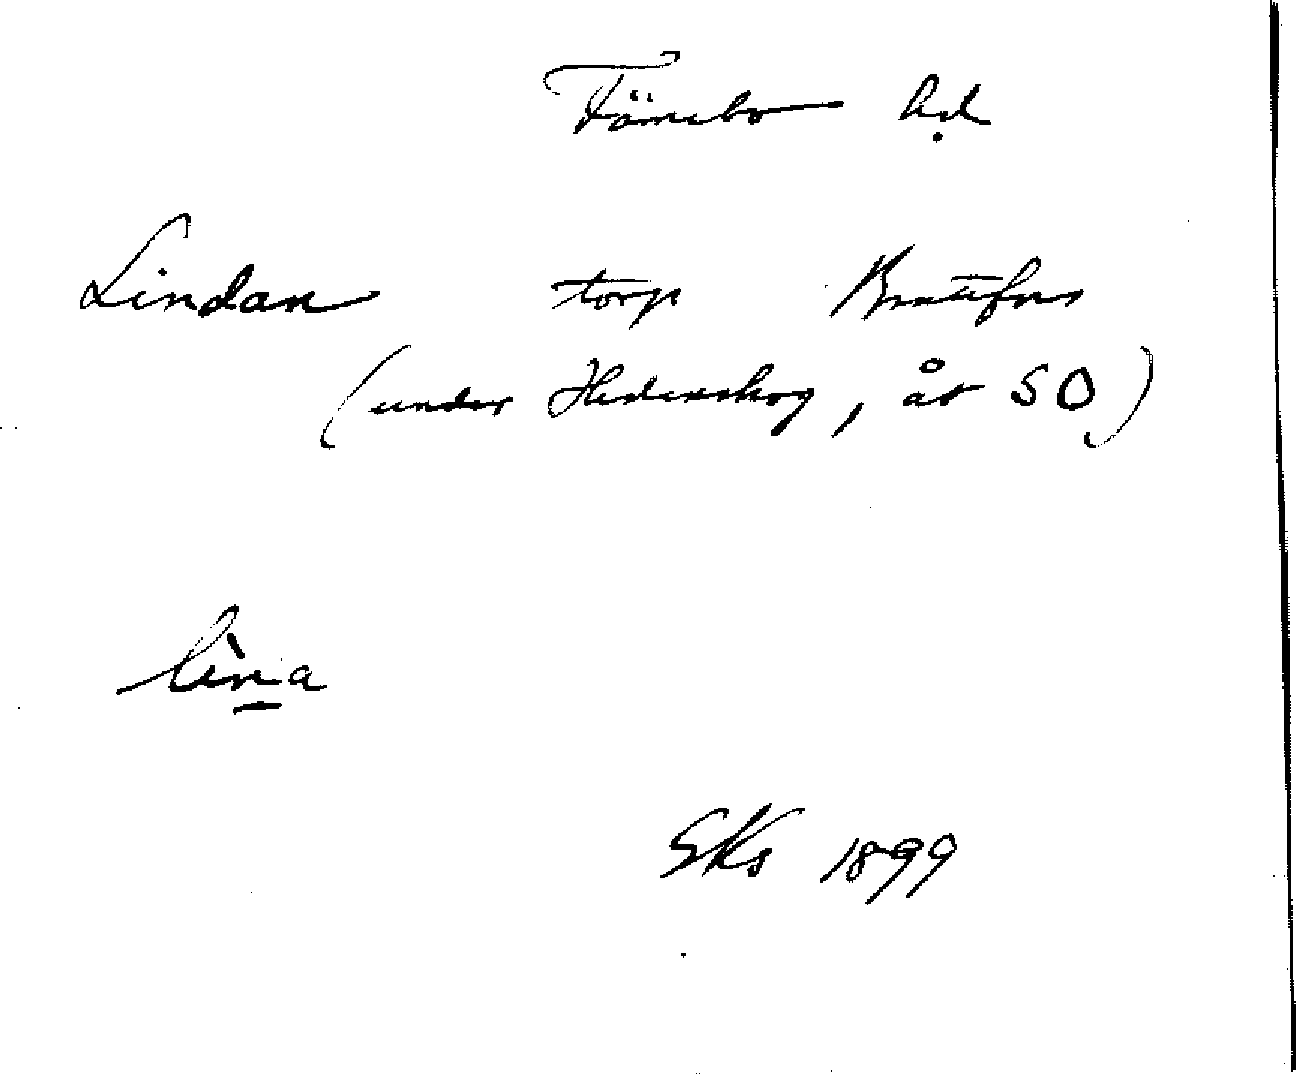 Färnebo hd
Lindan torp Brattfors
(under Hedenskog, åt SO)
lìna
SKs 1899